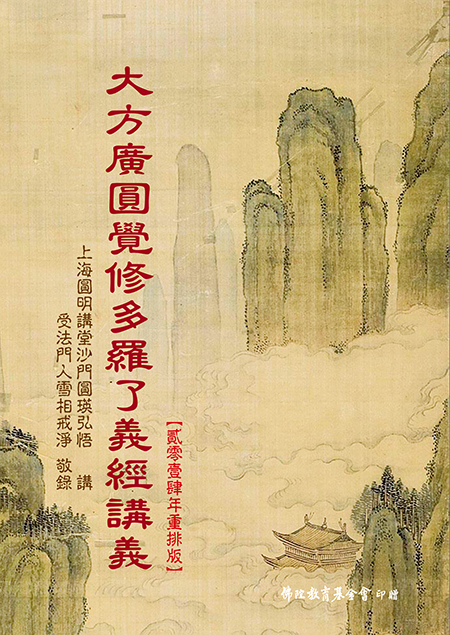 大方廣圓覺修多羅了義經講義
【貳零壹肆年重排版】
上海圓明講堂沙門圓瑛弘悟 講
受法門人雪相戒淨 敬錄
佛陀教育基金會 印贈